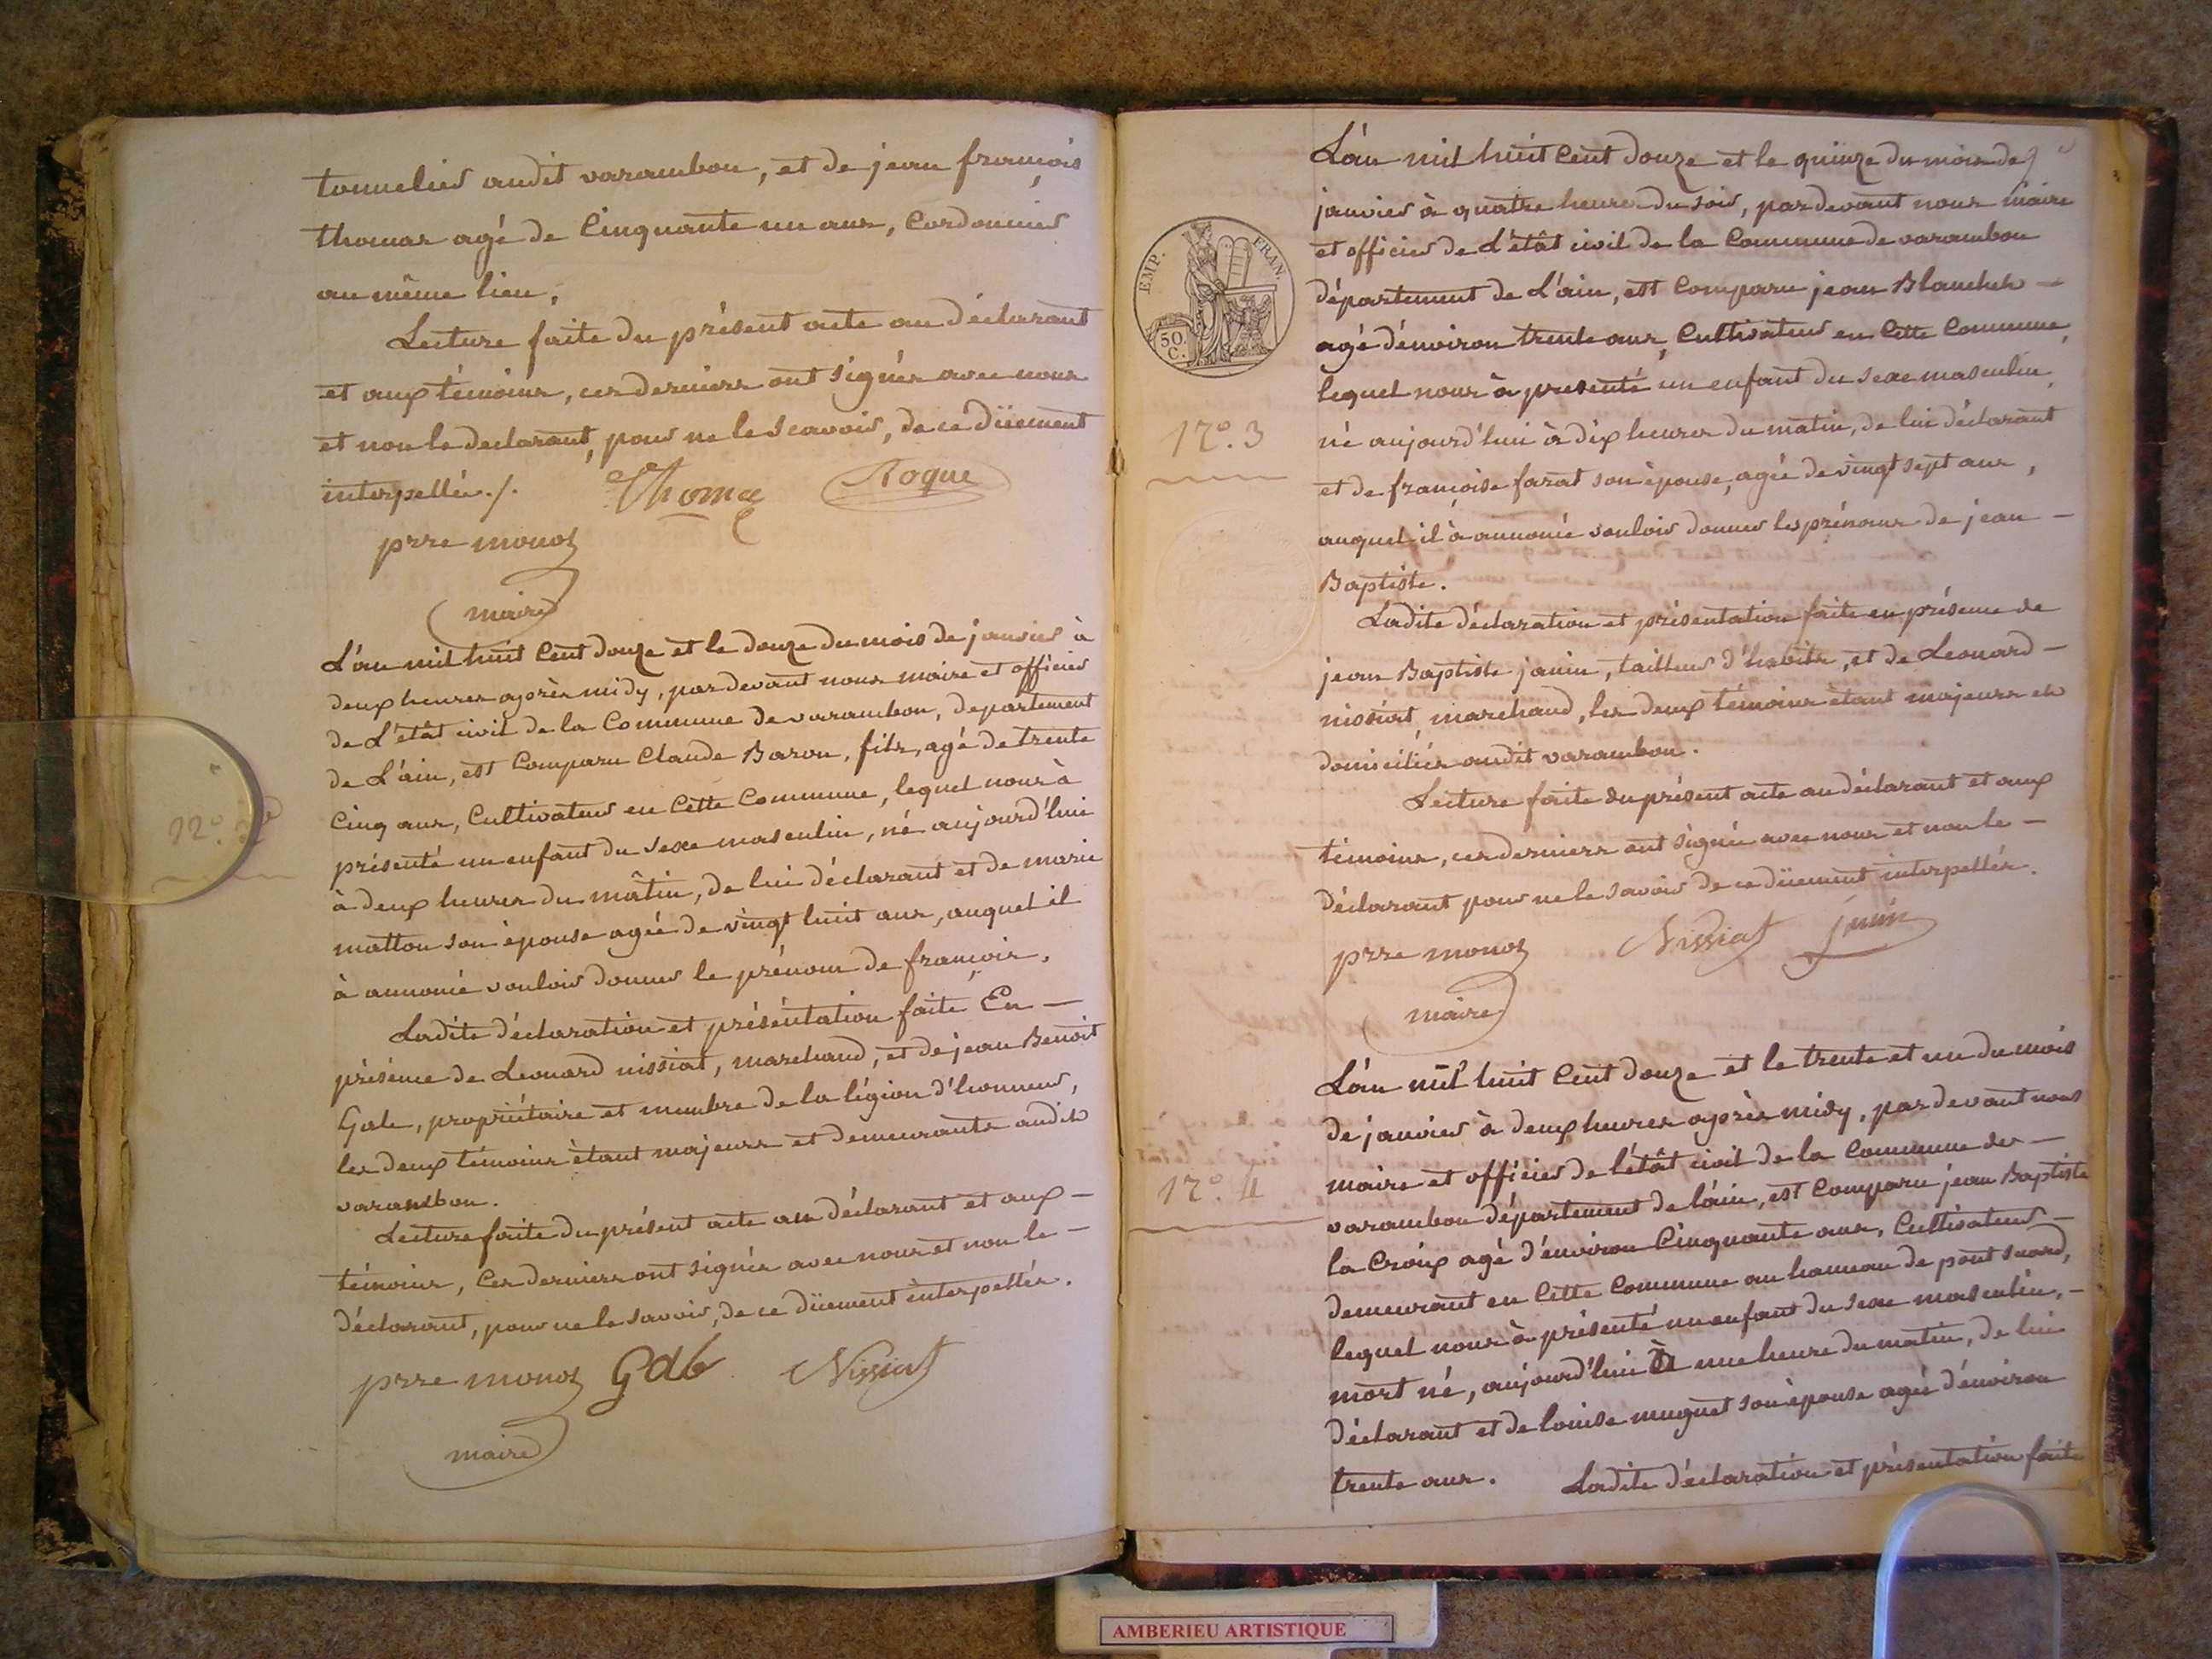 tonnelier audit varambon, et de jean françois
thomas agé de Cinquante un ans, Cordonnier
au même lieu,
Lecture faite du présent acte au déclarant
et aux témoins, ces derniers ont signés avec nous
et non le declarant, pour ne le scavoir, de cé düement
interpellés./.
Thoma
Roque
prre monoz
maire
L'án mil huit Cent douze et le douze du mois de janvier à
deux heures après midy, pardevant nous maire et officier
de L'étât civil de la Commune de varambon, departement
de L'áin, est Comparu Claude Baron, fils, agé de trente
Cinq ans, Cultivateur en Cette Commune, lequel nous à
présenté un enfant du sexe masculin, né aujourd'hui
à deux heures du mâtin, de lui déclarant et de marie
matton son épouse agée de vingt huit ans, auquel il
à annoncé vouloir donner le prénom de françois.
Ladite déclaration et présentation faite En —
présence de Leonard nissiat, marchand, et de jean Benoit
Gale, propriétaire et membre de la légion d'honneur,
les deux témoins étant majeurs et demeurants audit
varambon.
Lecture faite du présent acte au déclarant et aux —
témoins, Ces derniers ont signés avec nous et non le —
déclarant, pour ne le savoir, de ce düement interpellés.
prre monoz
Nissiat
maire
N°. 2
L'án mil huit Cent douze et le quinze du mois de
janvier à quatre heures du soir, pardevant nous maire
et officier de L'étât civil de la Commune de varambon
département de L'áin, est Comparu jean Blanchet —
agé d'énviron trente ans, Cultivateur en Cette Commune,
lequel nous à presenté un enfant du sexe masculin,
né aujourd'hui à dix heures du matin, de lui déclarant
et de françoise farat son épouse, agée de vingt sept ans,
auquel il à annoncé vouloir donner les prénoms de jean —
Baptiste.
Ladite déclaration et présentation faite en présence de
jean Baptiste janin, tailleur d'habits, et de Leonard —
nissiat, marchand, les deux témoins étant majeurs et
domiciliés audit varambon.
Lecture faite du présent acte au déclarant et aux
témoins, ces derniers ont signés avec nous et non le —
déclarant pour ne le savoir de ce düement interpellés.
prre monoz
Nissiat
janin
maire
EMP. FRAN.
50.
C.
N°. 3
L'án mil huit Cent douze et le trente et un du mois
de janvier à deux heures après midy, pardevant nous
maire et officier de l'étât civil de la Commune de —
varambon département de l'áin, est Comparu jean Baptiste
la Croix agé d'énviron Cinquante ans, Cultivateur —
demeurant en Cette Commune au hameau de pont suard,
lequel nous à présenté un enfant du sexe masculin, —
mort né, aujourd'hui à une heure du matin, de lui
déclarant et de louise muguet son épouse agée d'énviron
trente ans. Ladite déclaration et présentation faite
N°. 4
AMBERIEU ARTISTIQUE